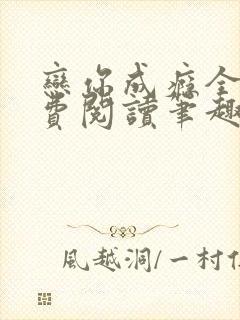 戀你成癮全
費閱讀筆趣
風越洞/一村仁